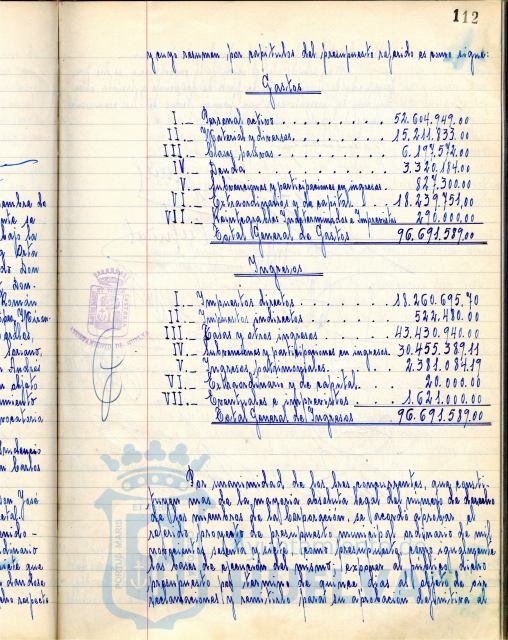 112
y cuyo resumen por capítulos del presupuesto referido es como sigue:
Gastos
I._ Personal activo . . . . . . . . . . 52.604.949.00
II._ Material y diversos . . . . . . . . . 15.211.833.00
III._ Clases pasivas . . . . . . . . . . 6.197.572.00
IV._ Deuda . . . . . . . . . . 3.320.184.00
V._ Subvenciones y participaciones en ingresos. 827.300.00
VI._ Extraordinarios y de capital . . . . . 18.239.751.00
VII._ Reintegrables Indeterminados e Imprevistos 290.000.00
Total General de Gastos 96.691.589.00
Ingresos
I._ Impuestos directos . . . . . . . . . 18.260.695.70
II._ Impuestos indirectos . . . . . . . . 522.480.00
III._ Tasas y otros ingresos . . . . . . . 43.430.940.00
IV._ Subvenciones y participaciones en ingresos. 30.455.389.11
V._ Ingresos patrimoniales . . . . . . . 2.381.084.19
VI._ Extraordinario y de capital . . . . . 20.000.00
VII._ Eventuales e imprevistos . . . . . 1.621.000.00
Total General de Ingresos 96.691.589.00
Por unanimidad de los tres concurrentes, que consti-
tuyen mas de la mayoria absoluta legal del número de derecho
de los miembros de la Corporación, se acordó aprobar el
referido proyecto de presupuesto municipal ordinario de mil
novecientos sesenta y siete como presupuesto como igualmente
las bases de ejecución del mismo; exponer al público dicho
presupuesto por termino de quince dias al objeto de oir
reclamaciones y remitirlo para su aprobación definitiva al